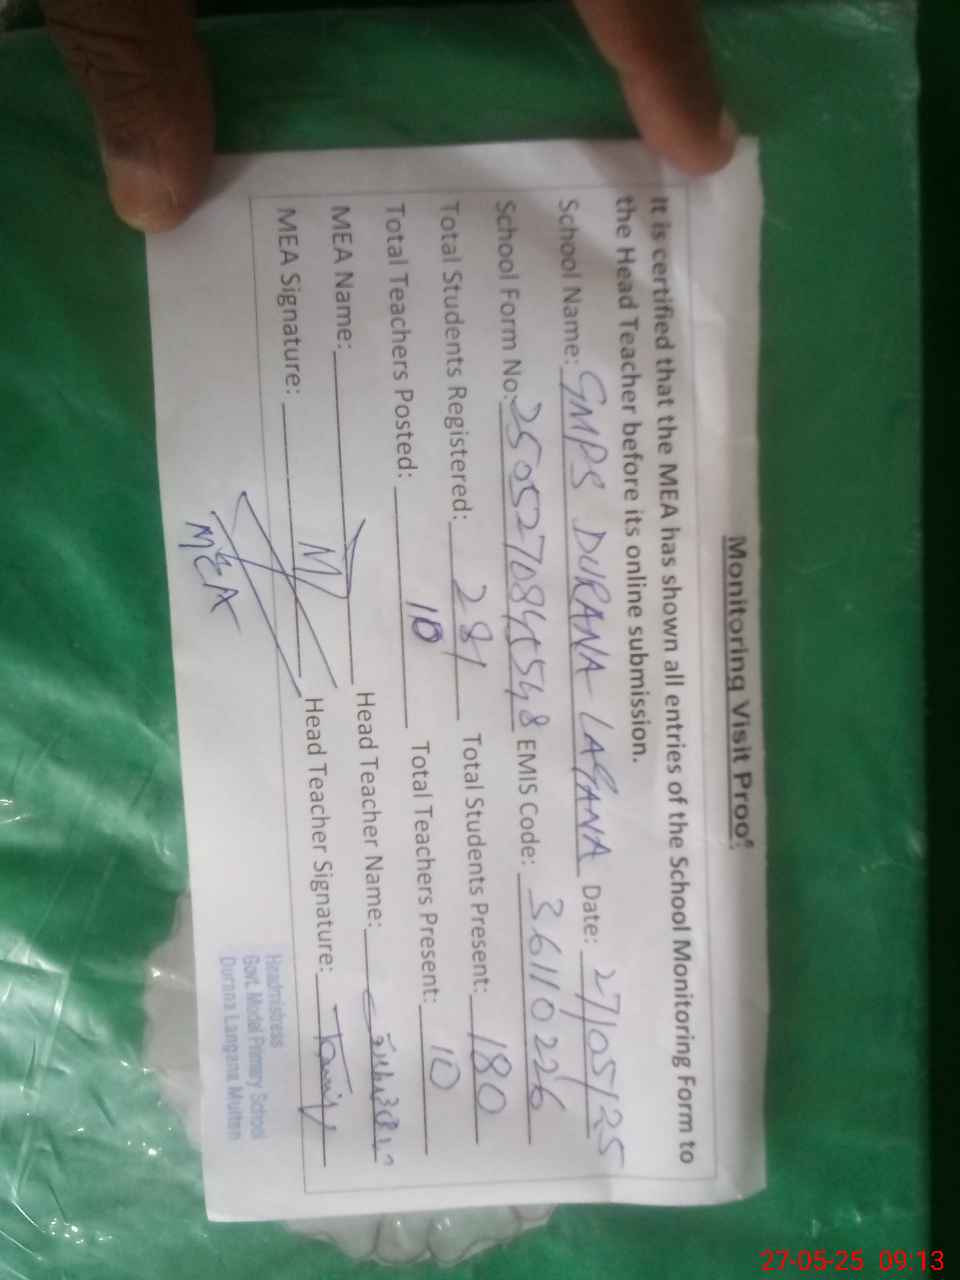 Monitoring Visit Proof
It is certified that the MEA has shown all entries of the School Monitoring Form to
the Head Teacher before its online submission.
School Name: GMPS DURANA LAGANA Date: 27/05/25
School Form No: EMIS Code: 36110226
Total Students Registered: 281 Total Students Present: 180
Total Teachers Posted: 10 Total Teachers Present: 10
MEA Name: Head Teacher Name:
MEA Signature: Head Teacher Signature:
MEA
Headmistress
Govt. Model Primary School
Durana Langana Multan
27-05-25 09:13